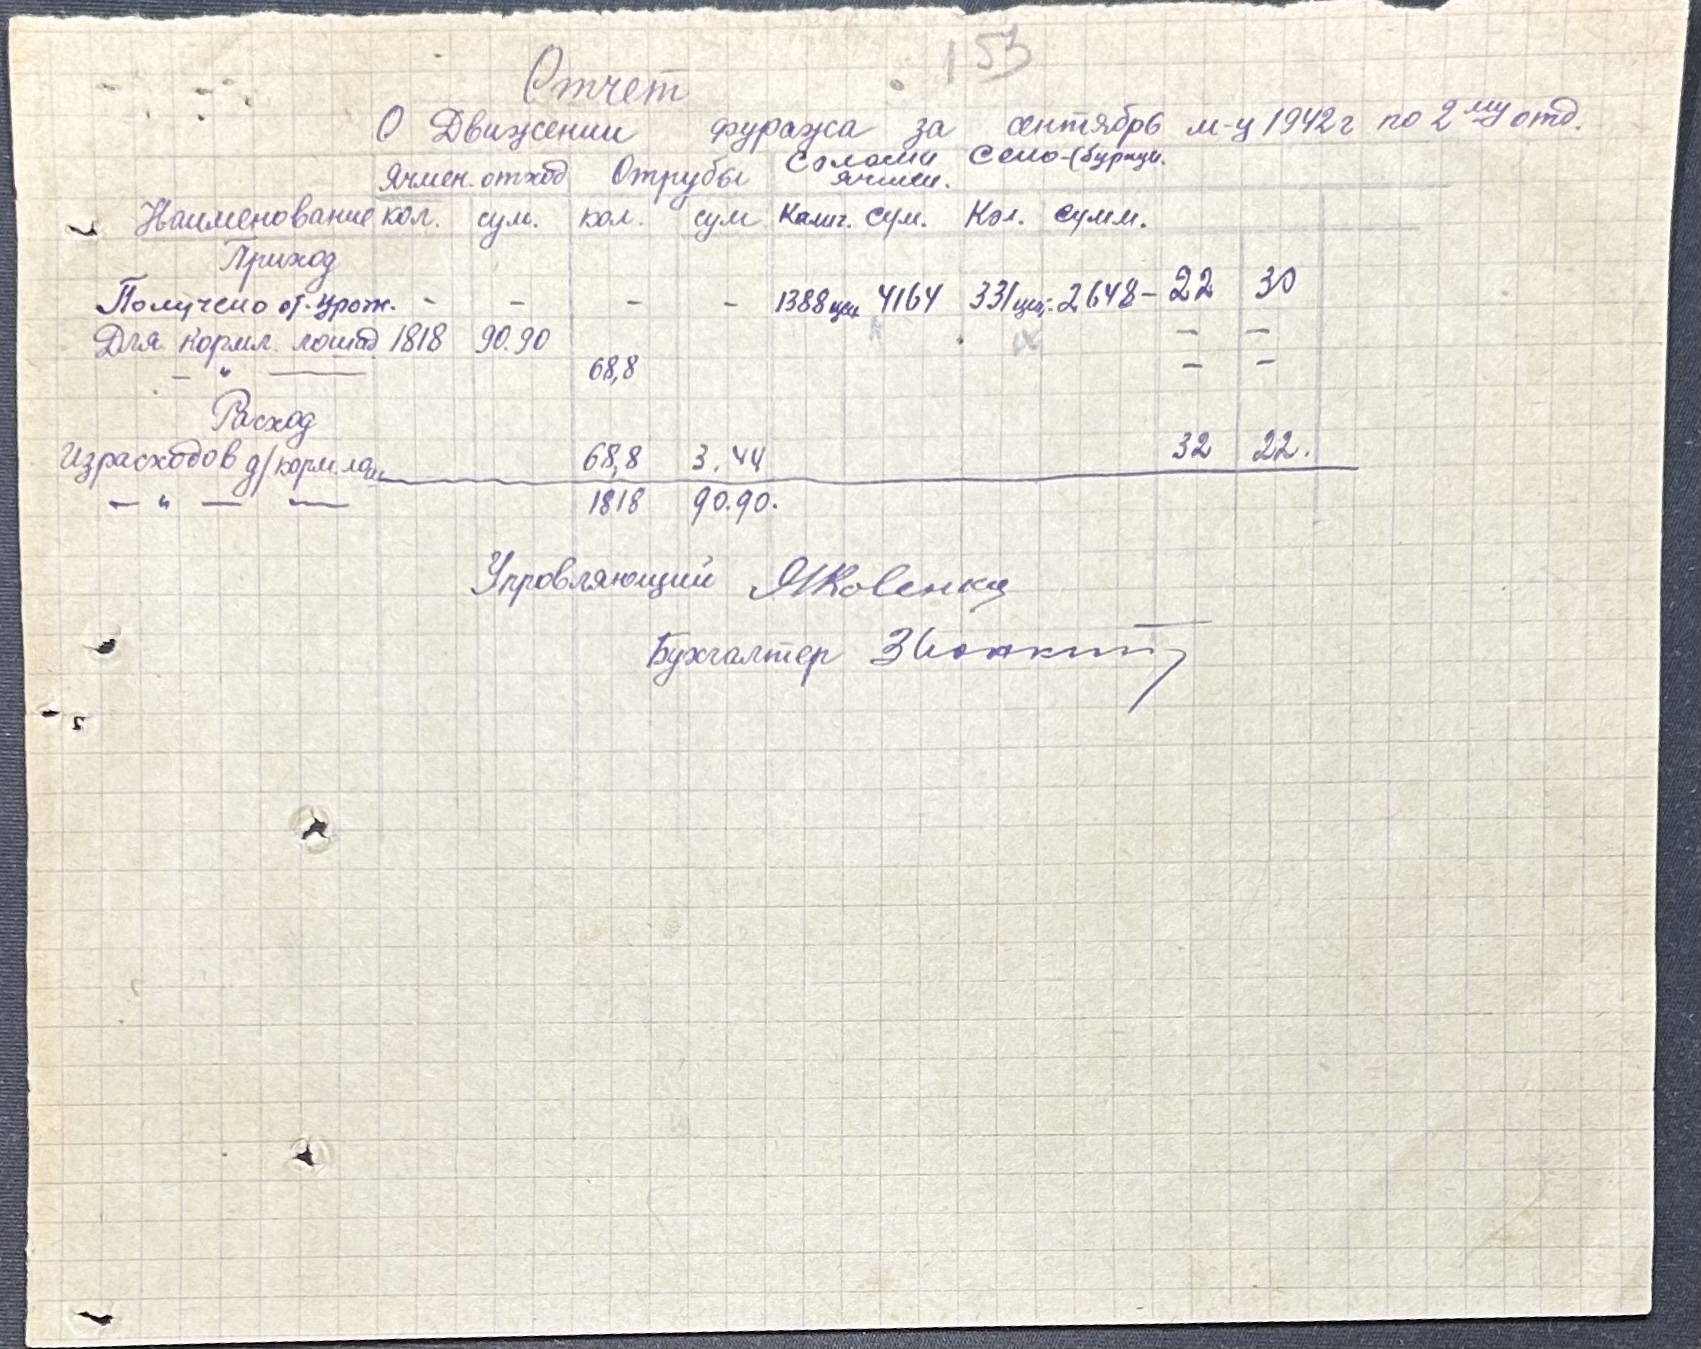 153
Отчет
О Движении фуража за сентябрь м-ц 1942 г по 2му отд.
Ячмен. отход Отрубы Соломи ячмен. Сено-(бурци.
Наименование кол. сум. кол. сум Колич. сум. Кол. сумм.
Приход
Получено от. урож. - - - - 1388 цен. 4164 331 цен. 2648- 22 30
Для кормл. лошад 1818 90.90 - -
- " - 68,8 - -
Расход
Израсходов д/корм лош 68,8 3.44 32 22.
- " - - 1818 90.90.
Упровляющий Яковенко
Бухгалтер